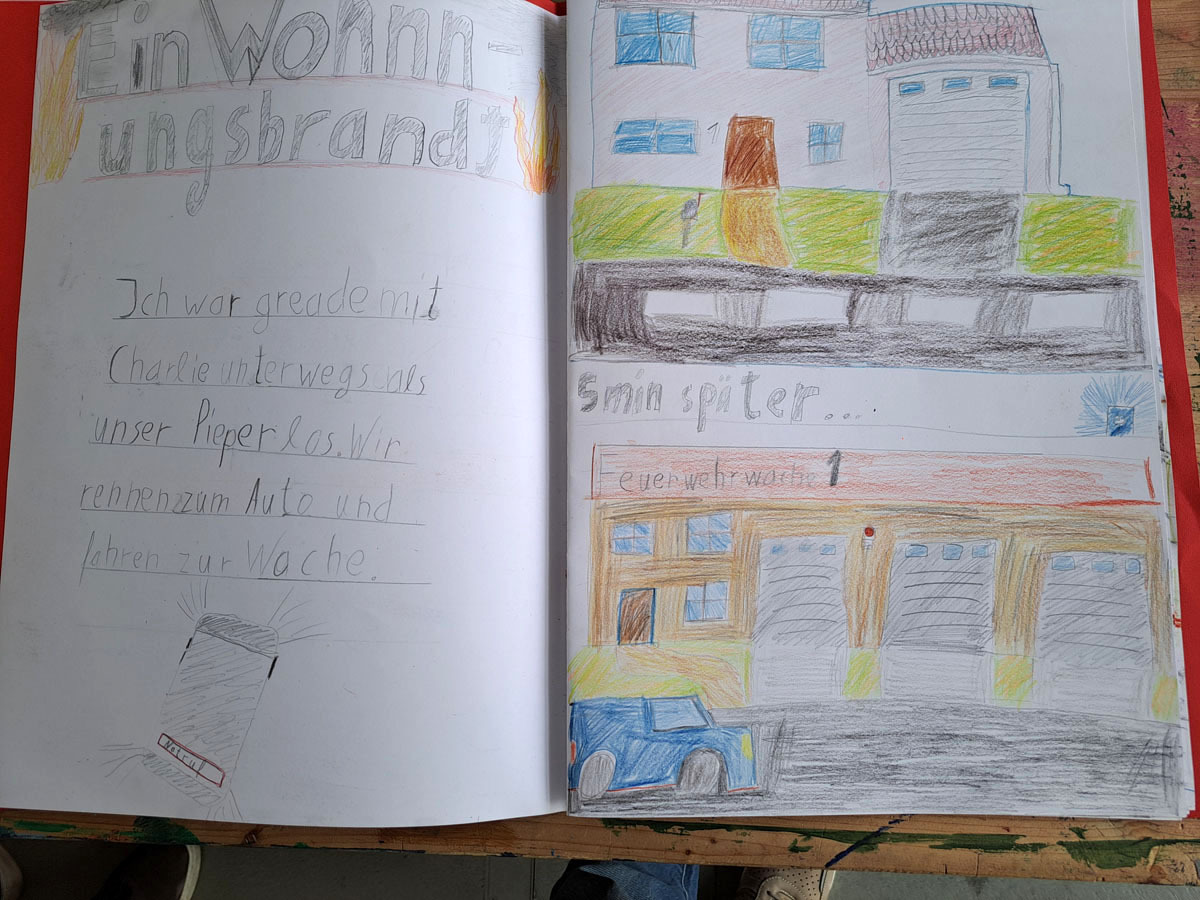 Ein Wohnn-
ungsbrandt
Ich war greade mit
Charlie unterwegs als
unser Pieper los. Wir
rennen zum Auto und
fahren zur Wache.
Notruf
1
5min später...
Feuerwehrwache 1